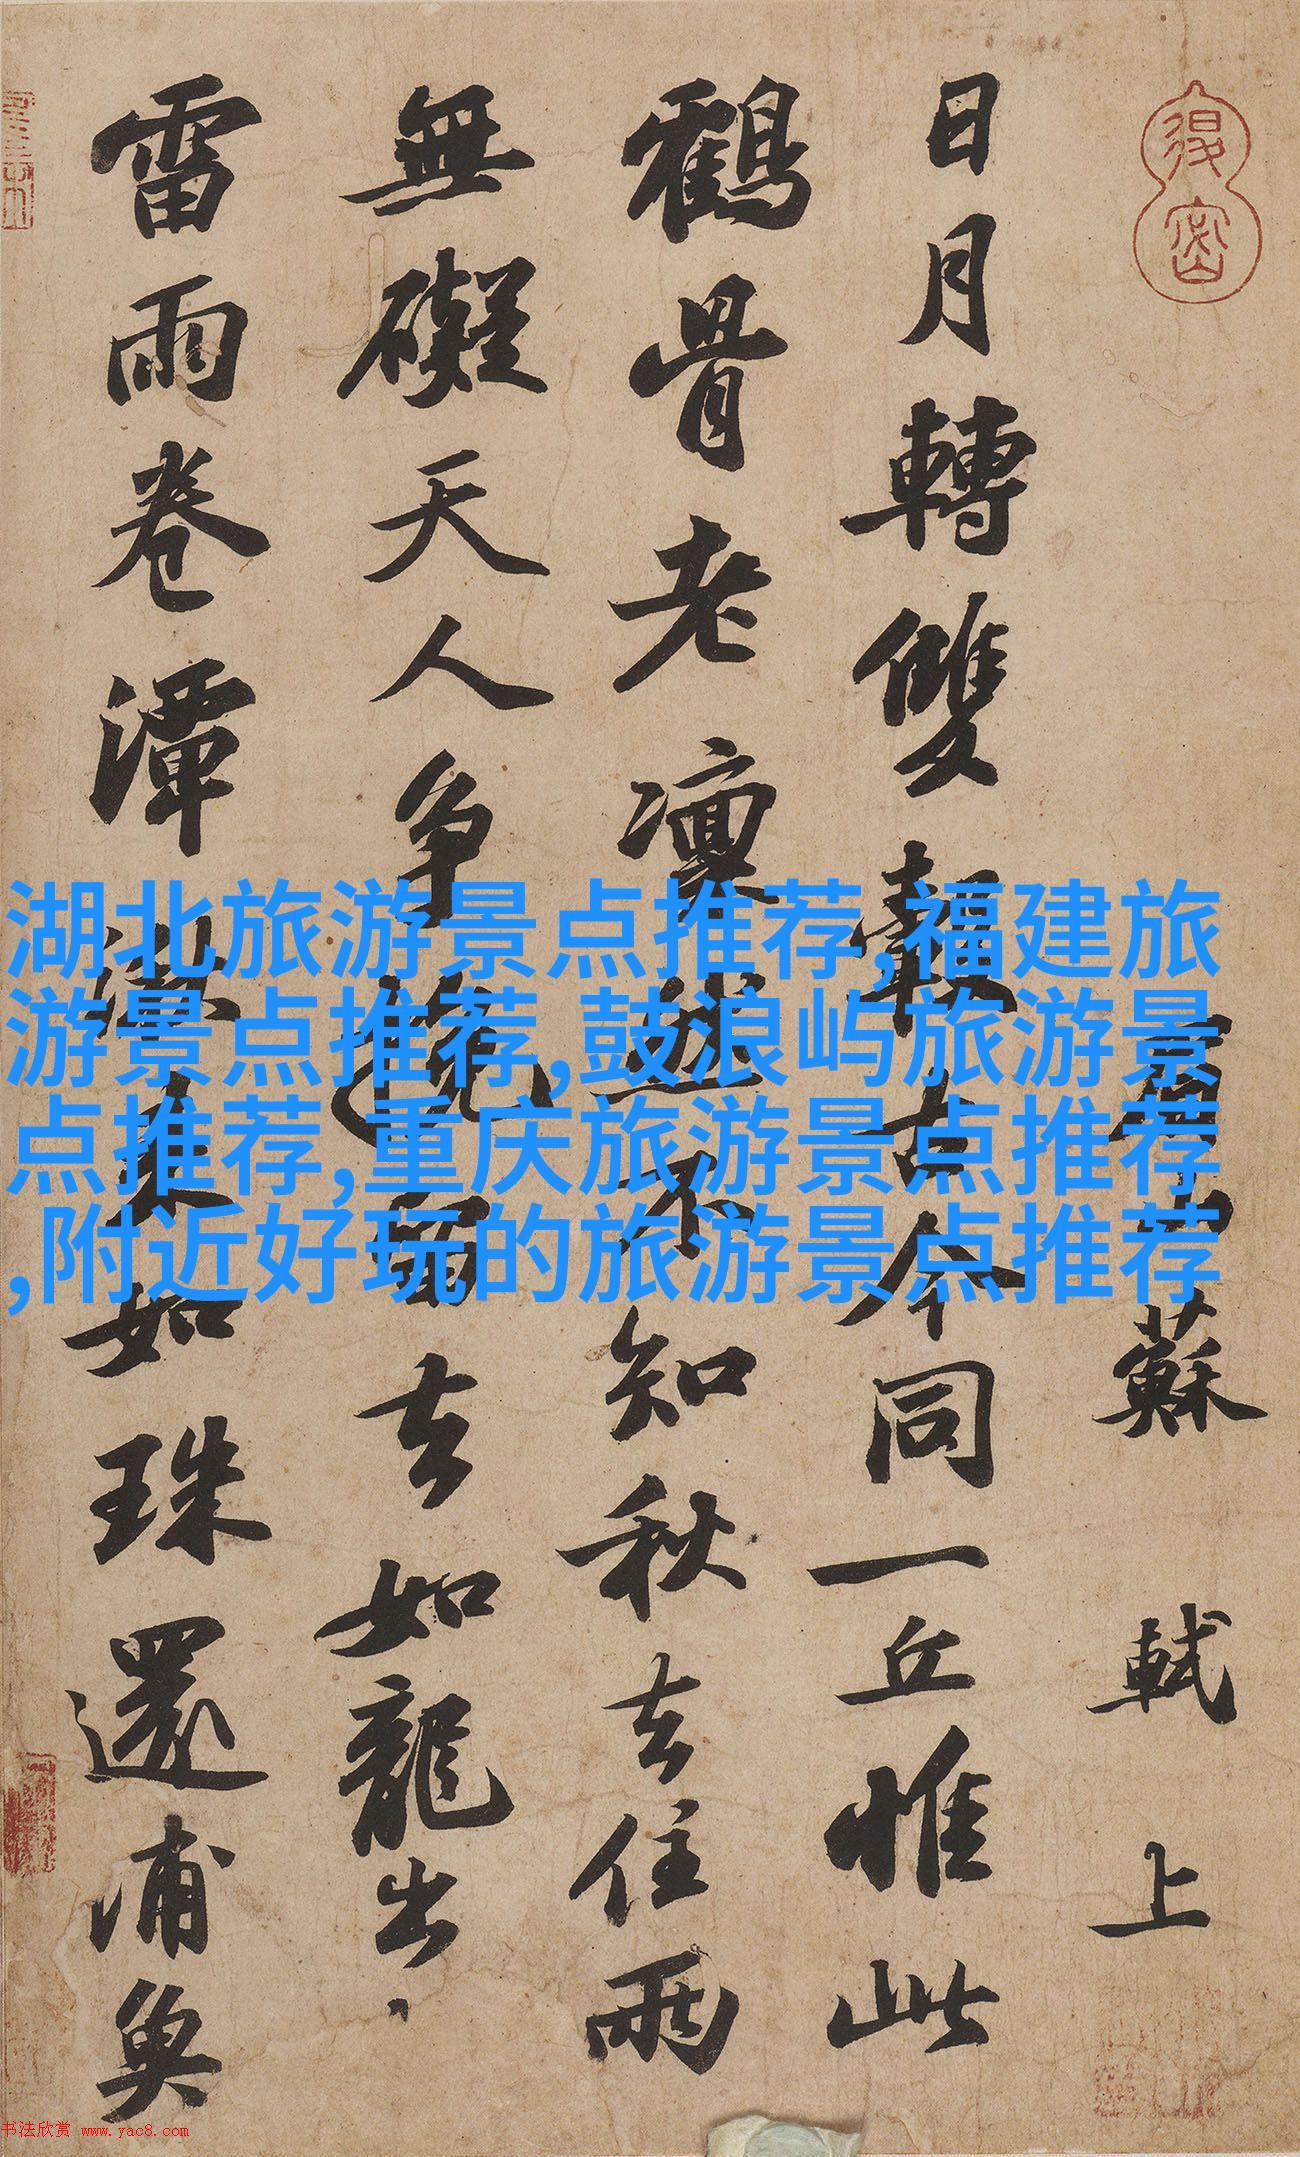 眉山蘇軾上
日月轉雙轂古今同一丘惟此
鶴骨老凜然不知秋去住兩
無礙天人争挽留去如龍出
雷雨卷潭湫来如珠還浦魚
湖北旅游景点推荐,福建旅
游景点推荐,鼓浪屿旅游景
点推荐,重庆旅游景点推荐
,附近好玩的旅游景点推荐
书法欣赏 www.yac8.com